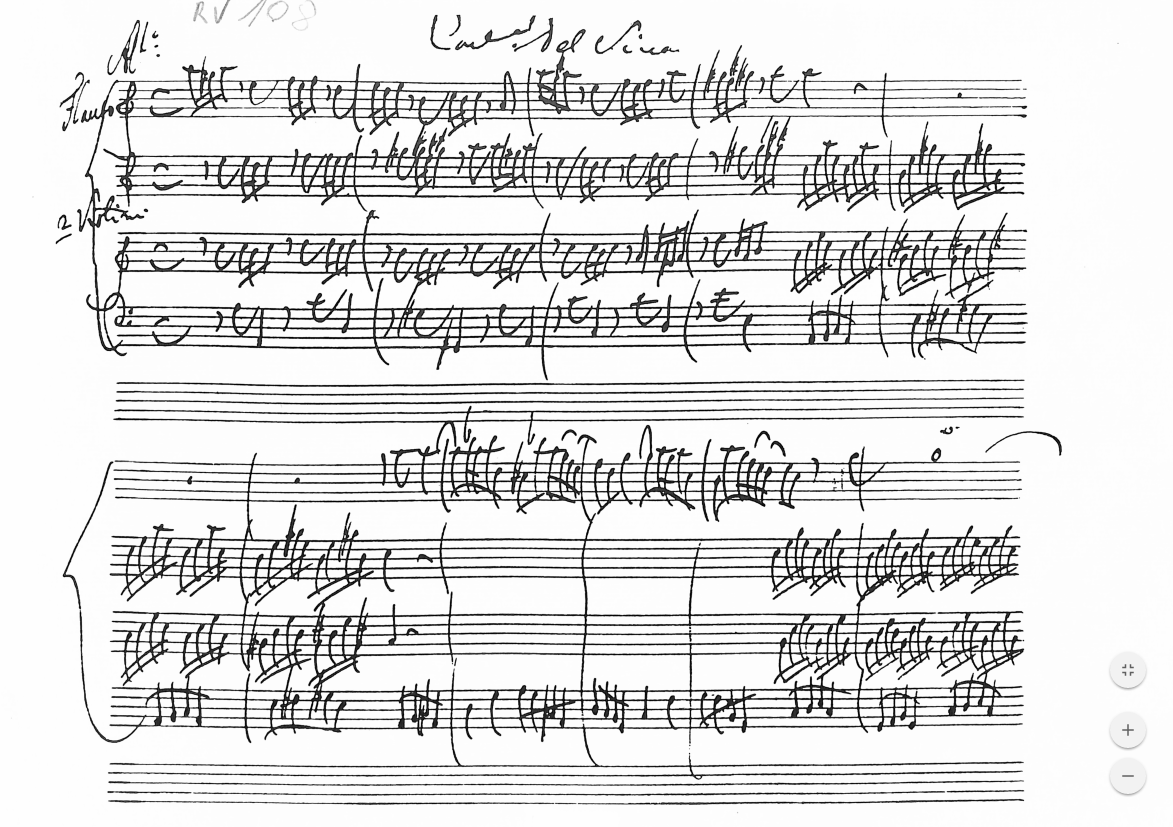 RV 108
Conto Del Viua
All:
Flauto
2 Violini